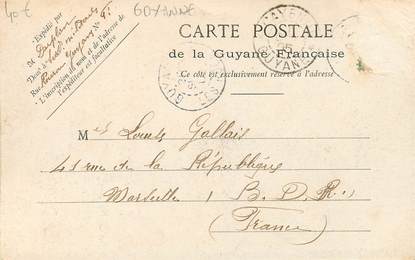 40 €
GUYANNE
CARTE POSTALE
de la Guyane Française
Ce côté est exclusivement réservé à l'adresse
Expédié par
M
Dem<sup>t</sup> à
Rue
L'inscription du nom et de l'adresse de
l'expéditeur est facultative
GUYANE
M Louis Gallais
41 rue de la République
Marseille B. D. R.
(France)